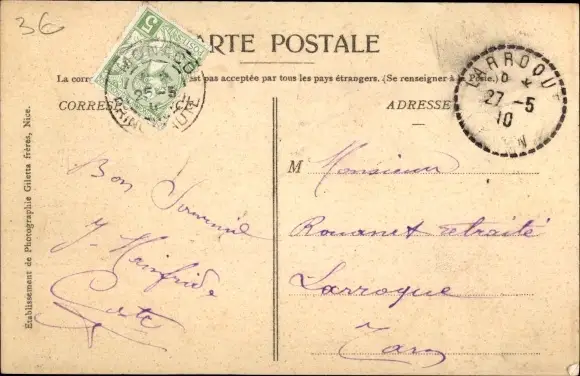 36
CARTE POSTALE
La corres est pas acceptée par tous les pays étrangers. (Se renseigner à la Poste.)
CORRES
ADRESSE
5
MONACO
25-5
PRINCIPAUTÉ
LARROQUE
27 -5
10
TARN
M Monsieur
Rouanet retraité
Larroque
Tarn
Bon Souvenir
J.
Etablissement de Photographie Giletta frères, Nice.